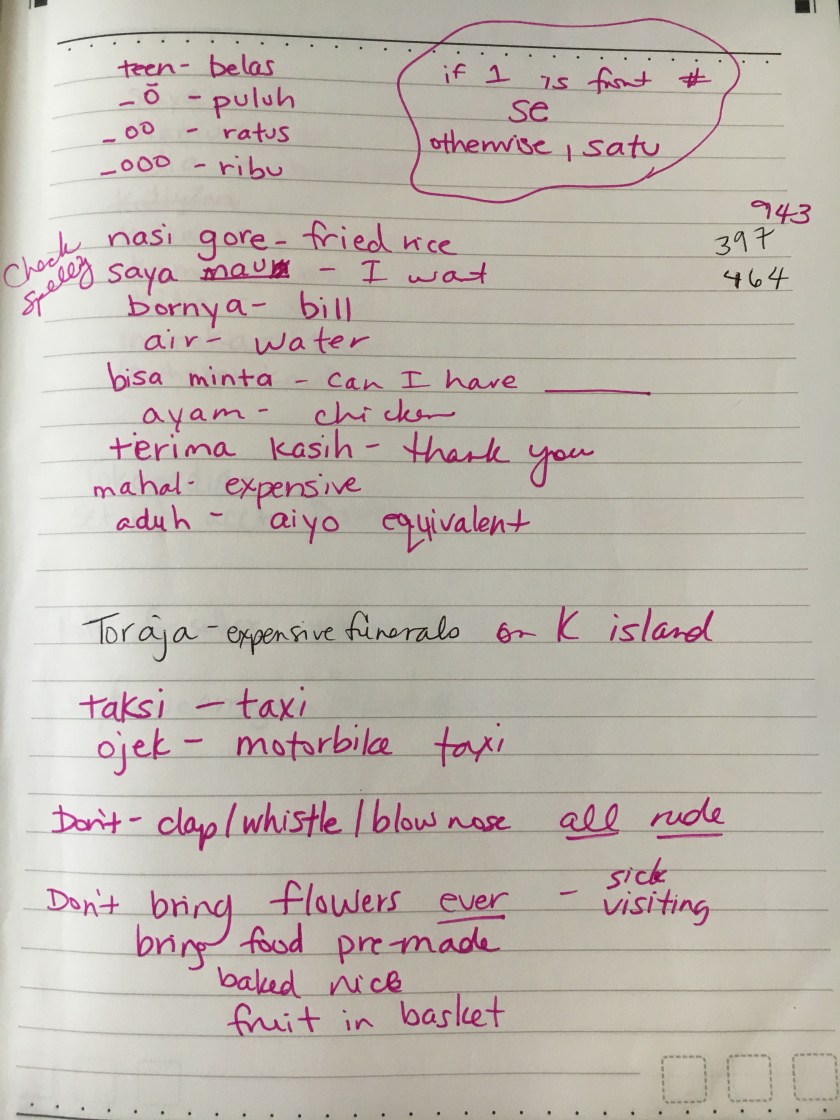 teen - belas
_0 - puluh
_00 - ratus
_000 - ribu
if 1 is front #
se
otherwise, satu
943
397
464
Check
spelling
nasi gore - fried rice
saya mau - I wat
bornya - bill
air - water
bisa minta - can I have ______
ayam - chicken
terima kasih - thank you
mahal - expensive
aduh - aiyo equivalent
Toraja - expensive funerals on K island
taksi - taxi
ojek - motorbike taxi
Don't - clap/whistle/blow nose all rude
Don't bring flowers ever - sick visiting
bring food pre-made
baked rice
fruit in basket